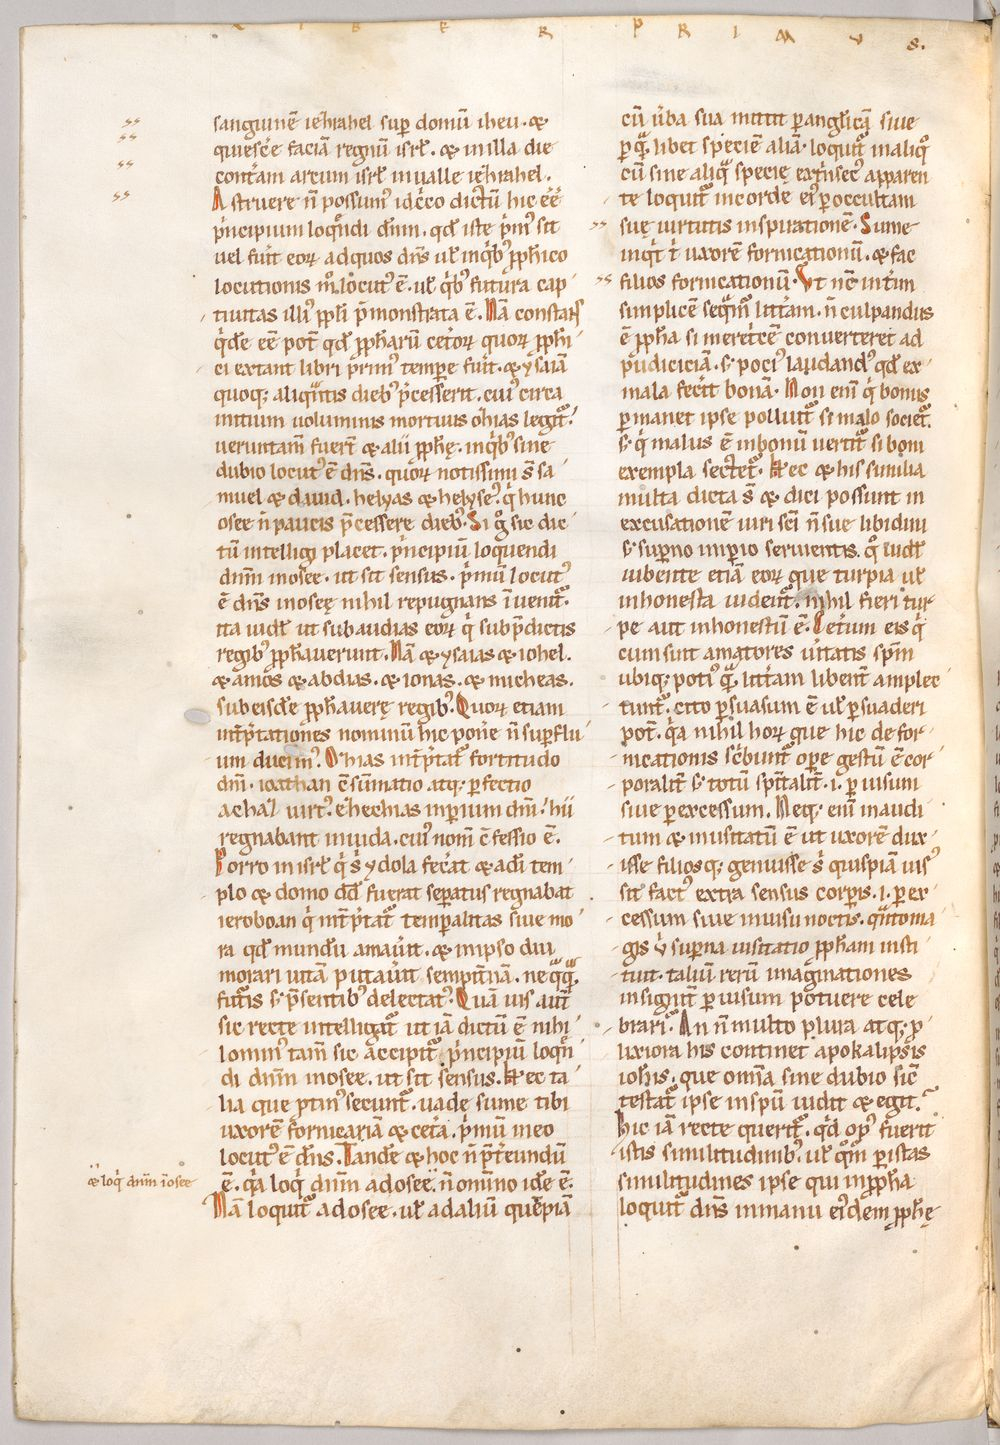 LIBER PRIMVS 8.
sanguinē iezrahel sup domū iheu. &
quiescẽ faciā regnū isrl̃. & in illa die
contãm arcum isrl̃ in ualle iezrahel.
Astruere ñ possum' idc̃co dictū hic eẽ
p̃ncipium loq̃ndi dñm. qd̃ iste p̃m' sit
uel fuit eoꝝ ad quos dñs ul̃ in qib' ꝓphico
locutionis locut' ẽ. ul̃ qib' futura cap
tiuitas illi' ppl̃i p̃monstrata ẽ. Nā constat
qd̃e eẽ pot̃ qd̃ ꝓphaꝝ cet̃oꝝ quoꝝ ꝓphi
ci extant libri p̃rim' tempe fuit. & ysaiā
quoq; aliqantis dieb' p̃cesserit. cui' circa
initium uoluminis mortuus ozias legit̃.
ueruntam̃ fuert̃ & alii ꝓphę. in qib' sine
dubio locut' ẽ dñs. quoꝝ notissimi s̃ sa
muel & dauid. helyas & helyse'. q̃ hunc
osee ñ paucis p̃cessere dieb'. Si g̃ sic dic
tū intelligi placet. p̃ncipiū loquendi
dñm in osee. ut sit sensus. p̃mū locut'
ẽ dñs in oseę nihil repugnans īuenit̃.
ita uidl̃ ut subaudias eoꝝ q̃ sub p̃dictis
regib' ꝓphauerunt. Nā & ysaias & iohel.
& amos & abdias. & ionas. & micheas.
sub eisdẽ ꝓphauerę regib'. Quoꝝ etiam
int̃p̃tationes nominū hic pone ñ supflu
um ducim'. Ozias int̃p̃tat̃ fortitudo
dñi. ioathan c̃sūmatio atq; pfectio
achaz uirt'. ezhechias inpium dñi. hii
regnabant in iuda. cui' nom̃ c̃fessio ẽ.
Porro in isrl̃ q̃ s̃ ydola fec̃at & a dĩ tem
plo & domo dd̃ fuerat sepatus regnabat
ieroboan q̃ int̃p̃tat̃ tempalitas siue mo
ra qd̃ mundū amau̇it. & in ipso diu
morari uitā putau̇it sempit̃nā. neqq̃q̃,
futuris s; p̃sentib' delectat'. Quā uis aut̃
sic recte intelligat̃ ut iā dictū ẽ nihi
lomin' tam̃ sic accipit̃ p̃ncipiū loq̃n
di dñm in osee. ut sit sensus. Hec ta
lia que ptin' secunt̃. uade sume tibi
uxorẽ fornicariā & ceta. p̃mū in eo
locut' ẽ dñs. Tandẽ & hoc ñ p̃t̃eundū
& loq̃ dñm ĩ osee ẽ. q̃a loq̃ dñm ad osee. ñ omnino idẽ ẽ.
Nā loquit̃ ad osee. ul̃ ad aliū quẽpiā
cū ūba sua mittit p anglicā siue
p q̃libet speciẽ aliā. loquit̃ in aliq̃
cū sine aliq̃ specie ext̃nsec' apparen
te loquit̃ in corde ei' p occultam
suę uirtutis inspirationẽ. Sume
inq̃t t̃ uxorẽ fornicationū. & fac
filios fornicationū. Ut nc̃ int̃im
simplicẽ seq̃m' litt̃am. ñ culpandus
ẽ ꝓpha si meret̃cẽ conuerteret ad
pudiciciā. s; poci' laudand' qd̃ ex
mala fecit bonā. Non enī q̃ bonus
pmanet ipse polluit̃ si malo societ̃.
s; q̃ malus ẽ in bonū uertit̃ si boni
exempla sectet̃. Hec & his similia
multa dicta s̃ & dici possunt in
excusationẽ uiri scĩ ñ sue libidini
s; supno impio seruientis. q̃ uidl̃
iubente etiā eoꝝ que turpia ul̃
inhonesta uident̃. nihil fieri tur
pe aut inhonestū ẽ. Cet̃um eis q̃
cum sint amatores u̇itatis spm̃
ubiq; poti' q̃ litt̃am libent̃ amplec
tunt̃. cito psuasum ẽ ul̃ psuaderi
pot̃. q̃a nihil hoꝝ que hic de for
nicationis sc̃bunt̃ ope gestū ẽ cor
poralit̃ s; totū spit̃alit̃. i. p uisum
siue p excessum. Neq; enī inaudi
tum & inusitatū ẽ ut uxorẽ dux
isse filiosq; genuisse s̃ quispiā uis'
sit̃ fact' extra sensus corpis. i. p ex
cessum siue in uisu noctis. q̃nto ma
gis ṽ supna uisitatio ꝓpham insti
tuit. taliū rerū imaginationes
insignit̃ p uisum potuere cele
brari. An ñ multo plura atq; p
lixiora his continet apokalipsis
iohis. que omīa sine dubio sic̃
testat̃ ipse in spū uidit & egit.
Hic iā recte querit̃. q̃d op' fuerit
istis similitudinib'. ul̃ q̃m p istas
similitudines ipse qui in ꝓpha
loquit̃ dñs in manu ei'dem ꝓphę